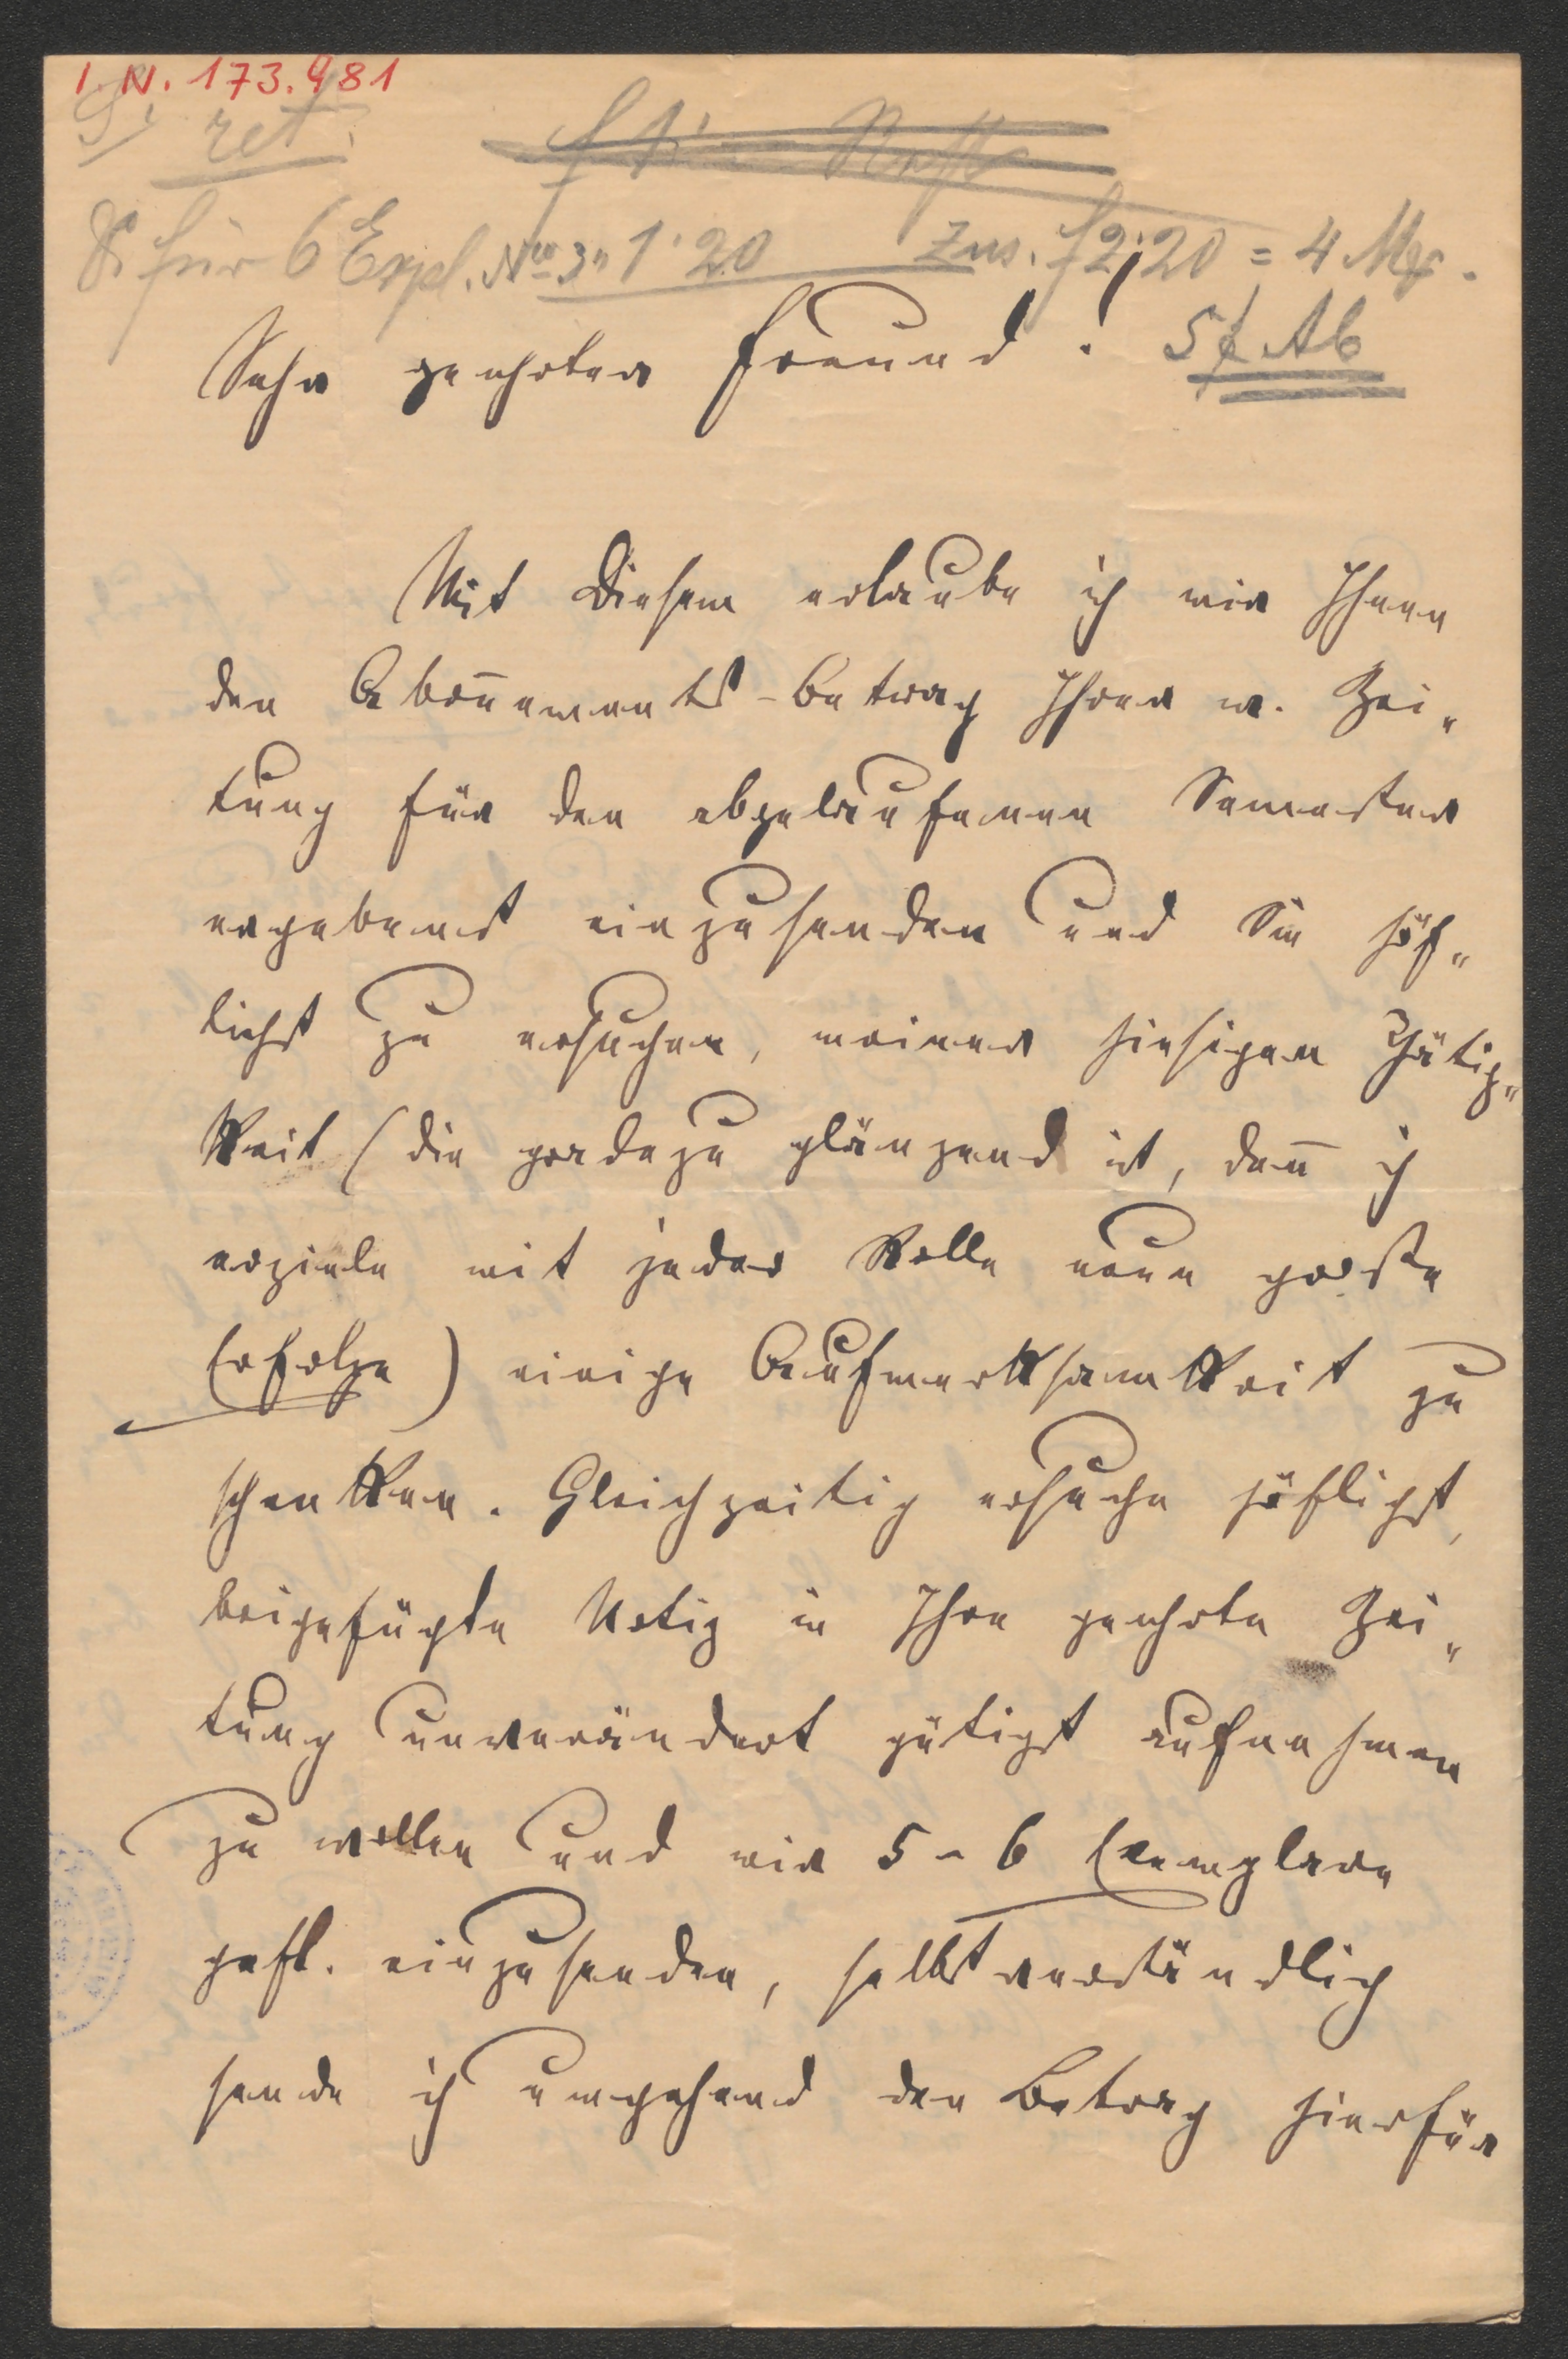 I. N. 173.981
ret.
& für 6 Expl. No 3 " 1·20 Zus. f 2·20 = 4 Mk.
Sehr geehrter Freund!
5 f Ab
Mit Diesem erlaube ich mir Ihnen
den Abon̄ements-Betrag Ihrer w. Zei„
tung für den abgelaufenen Semester
ergebenst einzusenden und Sie höf„
lichst zu ersuchen, meiner hiesigen Thätig„
keit (die geradezu glänzend ist, den̄ ich
erziele mit jeder Rolle neue große
Erfolge) einige Aufmerksamkeit zu
schenken. Gleichzeitig ersuche höfligst,
beigefügte Notiz in Ihre geehrte Zei„
tung unverändert gütigst aufnehmen
zu wollen und mir 5-6 Exemplare
gefl. einzusenden, selbstverständlich
sende ich umgehend den Betrag hierfür